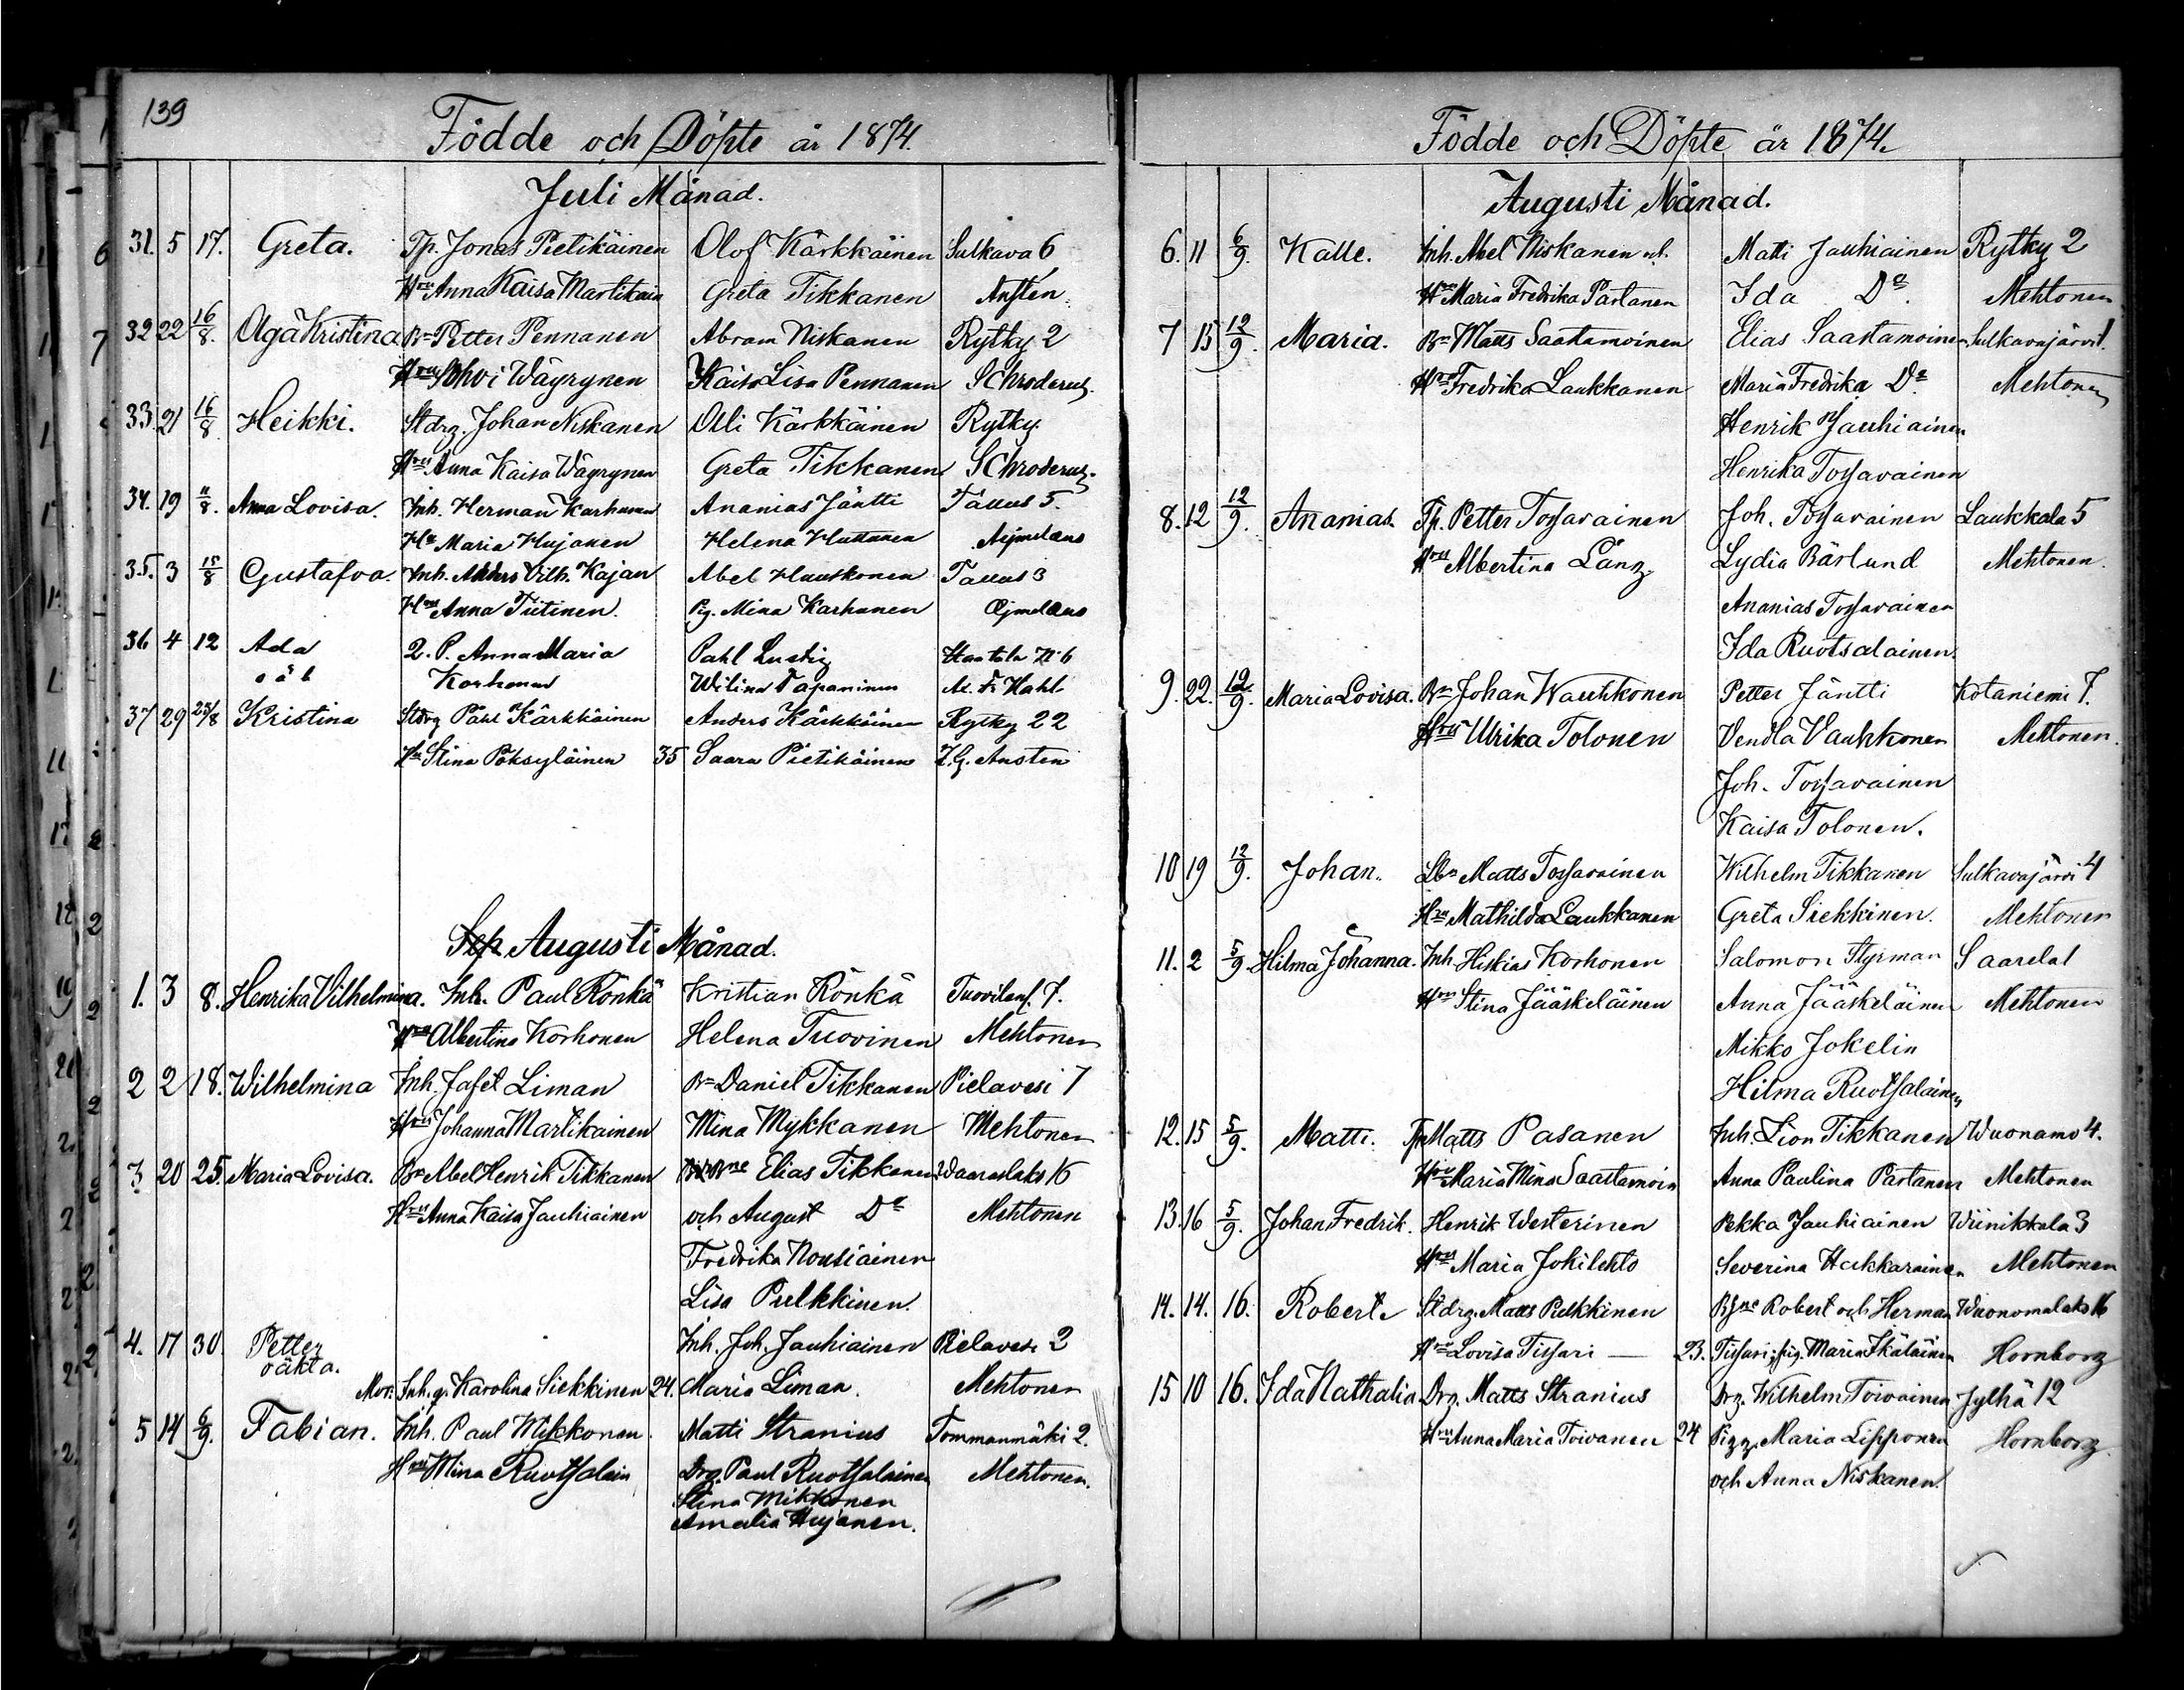 139
Födde och Döpte år 1874.
Juli Månad.
31. 5 17. Greta. Tp. Jonas Pietikäinen Olof Kärkkäinen Sulkava 6
Hru Anna Kaisa Martikain Greta Tikkanen Ansten
32 22 16/8. Olga Kristina Bn Petter Pennanen Abram Niskanen Rytky 2
Hru Sohvi Wäyrynen Kaisa Lisa Pennanen Schroderus.
33. 21 16/8 Heikki. Stdrg. Johan Niskanen Olli Kärkkäinen Rytky
Hru Anna Kaisa Wäyrynen Greta Tikkanen Schroderus.
34. 19 11/8. Anna Lovisa. Inh. Herman Karhunen Ananias Jäntti Tallus 5.
Hu Maria Hujanen Helena Huttunen Aejmelæus
35. 3 15/8 Gustafva. Inh. Anders Vilh. Kajan Abel Hauskonen Tallus 3
Hru Anna Tiitinen. Pg. Mina Karhunen Æjmelæus
36 4 12 Ada Q. P. Anna Maria Pahl Lustig
o ä b Korhonen Wilina Tapaninen
37 29 25/8 Kristina Stdrg Påhl Kärkkäinen Anders Kärkkäinen Rytky 22
Hu Stina Pöksyläinen 35 Saara Pietikäinen Z. G. Ansten
Sep Augusti Månad.
1. 3 8. Henrika Vilhelmina. Inh. Paul Rönkä Kristian Rönkä 7.
Hru Albertina Korhonen Helena Tuovinen Mehtonen
2 2 18. Wilhelmina Inh. Jafet Liman Bn Daniel Tikkanen Pielavesi 7
Hru Johanna Martikainen Mina Mykkänen Mehtonen
3 20 25. Maria Lovisa. Bn Abel Henrik Tikkanen Bne Elias Tikkanen Waaraslaks 16
Hru Anna Kaisa Jauhiainen och August Do Mehtonen
Fredrika Nousiainen
Lisa Pulkkinen.
4. 17 30 Petter Inh. Joh. Jauhiainen Pielavesi 2
oäkta.
Mor: Inh. q. Karolina Siekkinen 24. Maria Liman. Mehtonen
5 14 6/9. Fabian. Inh. Paul Mikkonen. Matti Stranius Tommanmäki 2.
Hru Mina Ruotsalain Drg. Paul Ruotsalainen Mehtonen.
Stina Mikkonen
Amalia Hujanen.
Födde och Döpte år 1874.
Augusti Månad.
6. 11 6/9. Kalle. Inh. Abel Niskanen o. h. Matti Jauhiainen Rytky 2
Hu Maria Fredrika Partanen Ida Do. Mehtonen
7 15 12/9. Maria. Bn Matts Saastamoinen Elias Saastamoinen Sulkavajärvi 1.
Hru Fredrika Laukkanen Maria Fredrika Do. Mehtonen
Henrik Jauhiainen
Henrika Tossavainen
8. 12 12/9. Ananias. Tp. Petter Tossavainen Joh. Tossavainen Laukkala 5
Hru Albertina Läng Lydia Bärlund Mehtonen.
Ananias Tossavainen
Ida Ruotsalainen.
9. 22. 12/9. Maria Lovisa. Bn Johan Wauhkonen Petter Jäntti Kotaniemi 7.
Hru Ulrika Tolonen Vendla Vauhkonen Mehtonen.
Joh. Tossavainen
Kaisa Tolonen.
10 19 12/9. Johan. Lbn Matts Tossavainen Wilhelm Tikkanen Sulkavajärvi 4
Hru Mathilda Laukkanen Greta Siekkinen. Mehtonen
11. 2 5/9. Hilma Johanna. Inh. Hiskias Korhonen Salomon Styrman Saarela 1
Hru Stina Jääskeläinen Anna Jääskeläinen Mehtonen
Mikko Jokelin
Hilma Ruotsalainen
12. 15 5/9. Matti. Tp Matts Pasanen Inh. Lion Tikkanen Wuonamo 4.
Hru Maria Mina Saastamoin Anna Paulina Partanen Mehtonen
13. 16 5/9. Johan Fredrik. Henrik Westerinen Pekka Jauhiainen Wiinikkala 3
Hru Maria Jokilehto Severina Hakkarainen Mehtonen
14. 14. 16. Robert. Stdrg. Matts Pulkkinen Bsne Robert och Herman Wuonomalaks 16
Hru Lovisa Tissari — 23. Tissari, pig. Maria Ikäläinen Hornborg
15 10 16. Ida Nathalia Drg. Matts Stranius Drg. Wilhelm Toivainen Jylhä 12
Hru Anna Maria Toivanen 24 Pigg. Maria Lipponen Hornborg.
och Anna Niskanen.